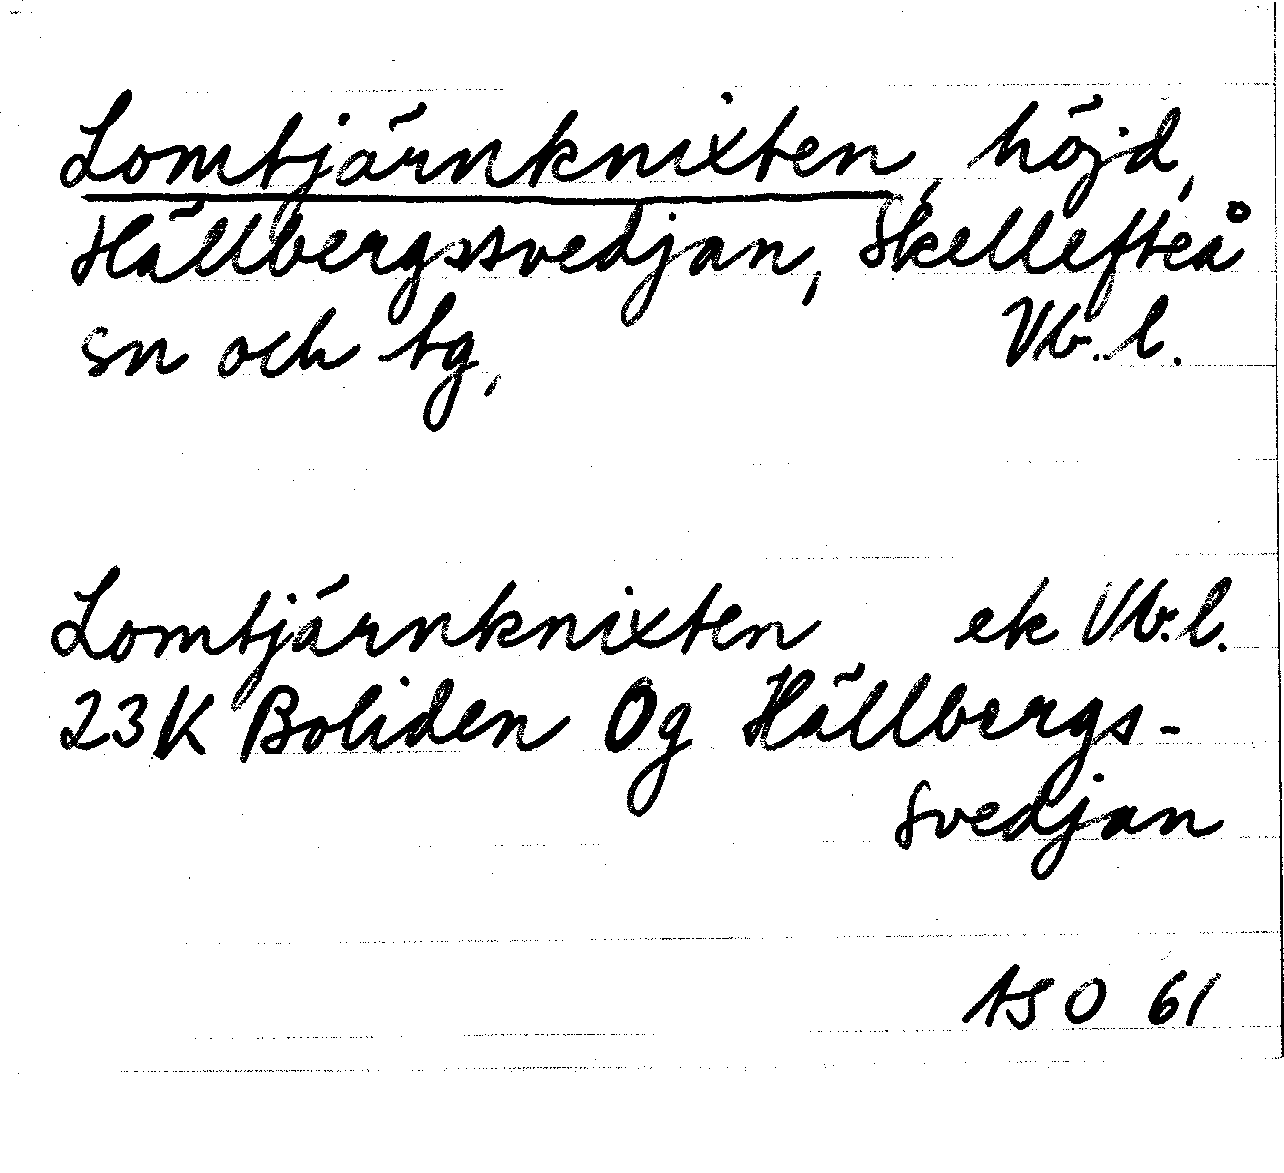 Lomtjärnknixten, höjd,
Hällbergssvedjan, Skellefteå
sn och tg, Vb. l.
Lomtjärnknixten ek Vb. l.
23K Boliden Og Hällbergs-
svedjan
ASO 61